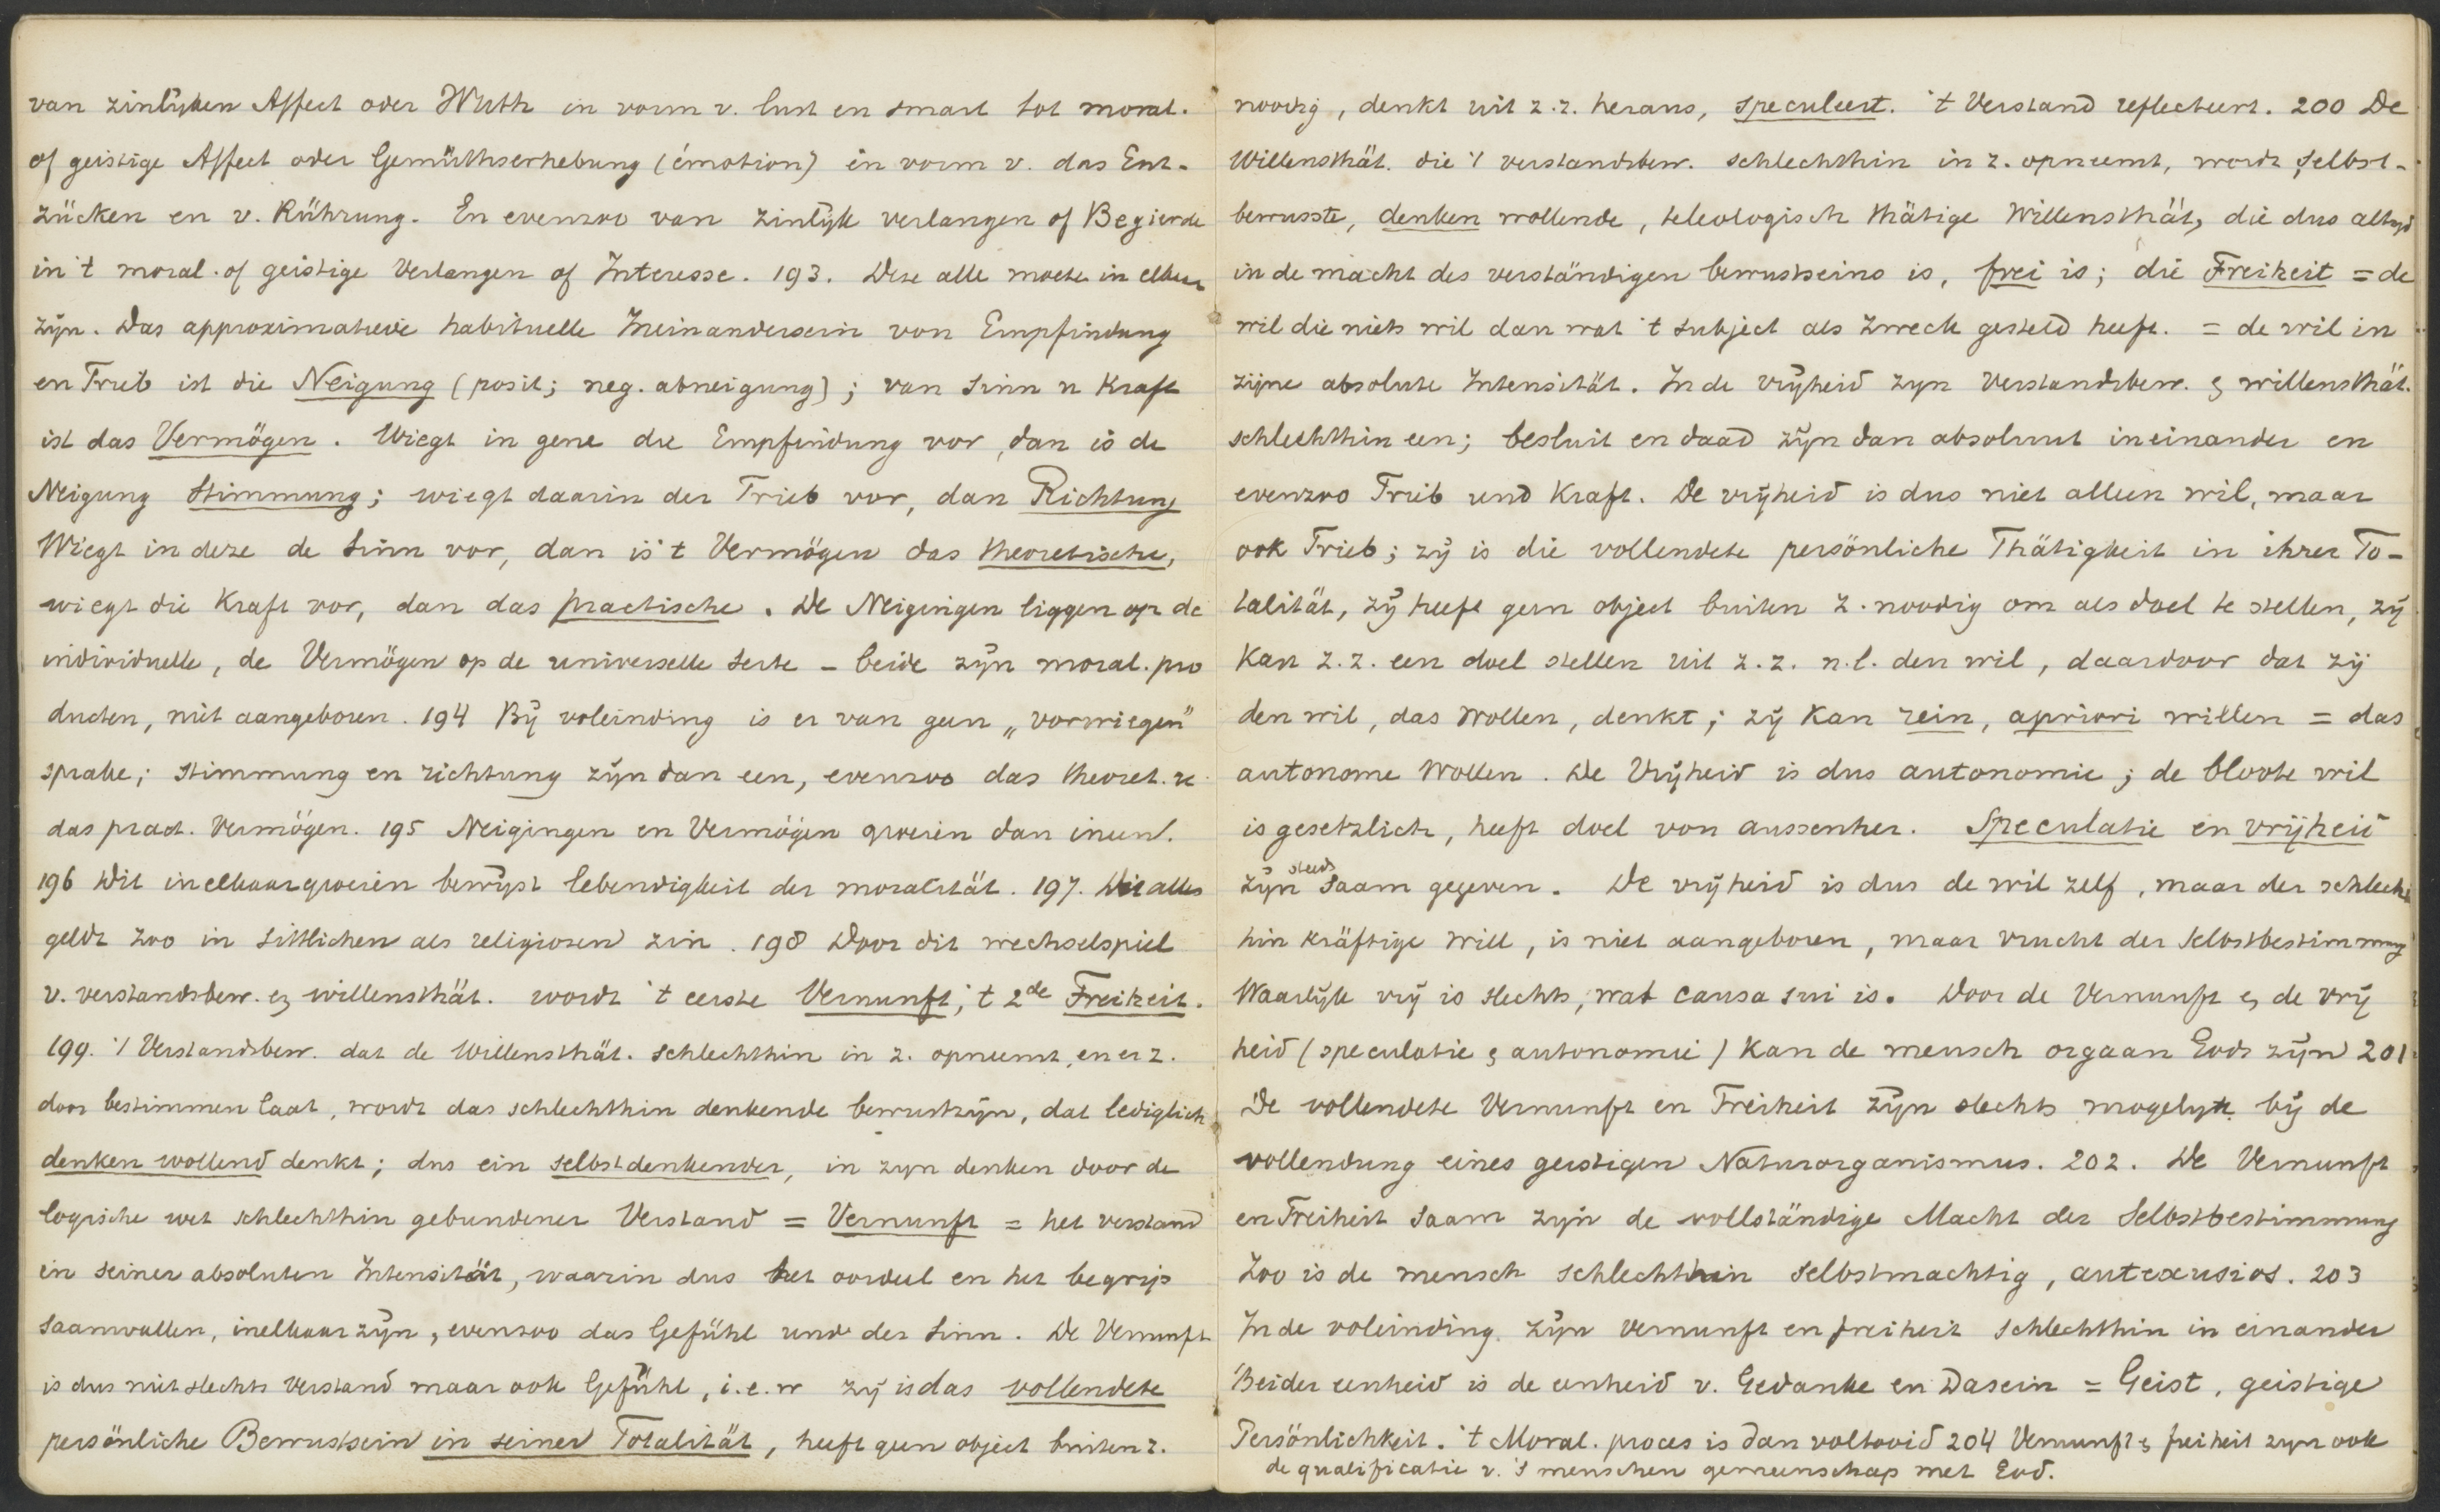 van zinlyken Affect oder Wuth in vorm v. lust en smart tot moral.
of geistige Affect oder Gemüthserhebung (émotion) in vorm v. das Ent-
zücken en v. Rührung. En evenzoo van zinlyk verlangen of Begierde
in 't moral. of geistige Verlangen of Interesse. 193. Deze alle moeten in elkaar
zyn. Das approximatieve habituelle Ineinandersein von Empfindung
en Trieb ist die Neigung (posit; neg. abneigung); van Sinn u Kraft
ist das Vermögen. Wiegt in gene die Empfindung vor, dan is de
Neigung Stimmung; wiegt daarin der Trieb vor, dan Richtung
Wiegt in deze de Sinn vor, dan is 't Vermögen das theoretische,
wiegt die Kraft vor, dan das practische. De Neigingen liggen op de
individuelle, de Vermögen op de universelle seite – beide zyn moral. pro
ducten, niet aangeboren. 194 By voleinding is er van geen „vorwiegen"
sprake; Stimmung en richtung zyn dan een, evenzoo das theoret. u
das pract. Vermögen. 195 Neigingen en Vermögen groeien dan ineen.
196 Dit inelkaargroeien bewyst lebendigkeit der moralität. 197. Dit alles
geldt zoo in sittlichen als religiosen zin. 198 Door dit wechselspiel
v. verstandsbew. en willensthät. wordt 't eerste Vernunft, 't 2de Freiheit.
199. 't Verstandsbew. dat de Willensthät. schlechthin in z. opneemt, en er z.
door bestimmen laat, wordt das schlechthin denkende bewustzyn, dat lediglich
denken wollend denkt; dus ein selbstdenkender, in zyn denken door de
logische wet schlechthin gebundener Verstand = Vernunft = het verstand
in seiner absoluten Intensität, waarin dus het oordeel en het begrip
saamvallen, inelkaar zyn, evenzoo das Gefühl und der Sinn. De Vernunft
is dus niet slechts Verstand maar ook Gefühl, i.e.w zy is das vollendete
persönliche Bewustsein in seiner Totalität, heeft geen object buiten z.
noodig, denkt uit z.z. heraus, speculeert. 't Verstand reflecteert. 200 De
Willensthät. die 't verstandsbew. schlechthin in z. opneemt, wordt selbst-
bewusste, denken wollende, teleologisch thätige Willensthät, die dus altyd
in de macht des verständigen bewustseins is, frei is; die Freiheit = de
wil die niets wil dan wat 't subject als Zweck gesteld heeft. = de wil in
zijne absolute Intensität. In de vryheid zyn Verstandsbew. & willensthät.
schlechthin een; besluit en daad zyn dan absoluut ineinander en
evenzoo Trieb und Kraft. De vryheid is dus niet alleen wil, maar
ook Trieb; zy is die vollendete persönliche Thätigkeit in ihrer To-
talität, zy heeft geen object buiten z. noodig om als doel te stellen, zy
kan z.z. een doel stellen uit z.z. n.l. den wil, daardoor dat zy
den wil, das Wollen, denkt; zy kan rein, apriori willen = das
autonome Wollen. De Vryheid is dus autonomie; de bloote wil
is gesetzlich, heeft doel von aussenher. Speculatie en vrijheid
zyn steeds saam gegeven. De vryheid is dus de wil zelf, maar der schlecht
hin kräftige Will, is niet aangeboren, maar vrucht der Selbstbestimmung
Waarlyk vry is slechts, wat causa sui is. Door de Vernunft & de vry
heid (speculatie & autonomie) kan de mensch orgaan Gods zyn 201
De vollendete Vernunft en Freiheit zyn slechts mogelyk by de
vollendung eines geistigen Naturorganismus. 202. De Vernunft
en Freiheit saam zyn de vollständige Macht der Selbstbestimmung
Zoo is de mensch schlechthin selbstmachtig, autexusios. 203
In de voleinding zyn Vernunft en freiheit schlechthin in einander
Beider eenheid is de eenheid v. Gedanke en Dasein = Geist, geistige
Persönlichkeit. 't Moral. proces is dan voltooid 204 Vernunft & freiheit zyn ook
de qualificatie v. 's menschen gemeenschap met God.